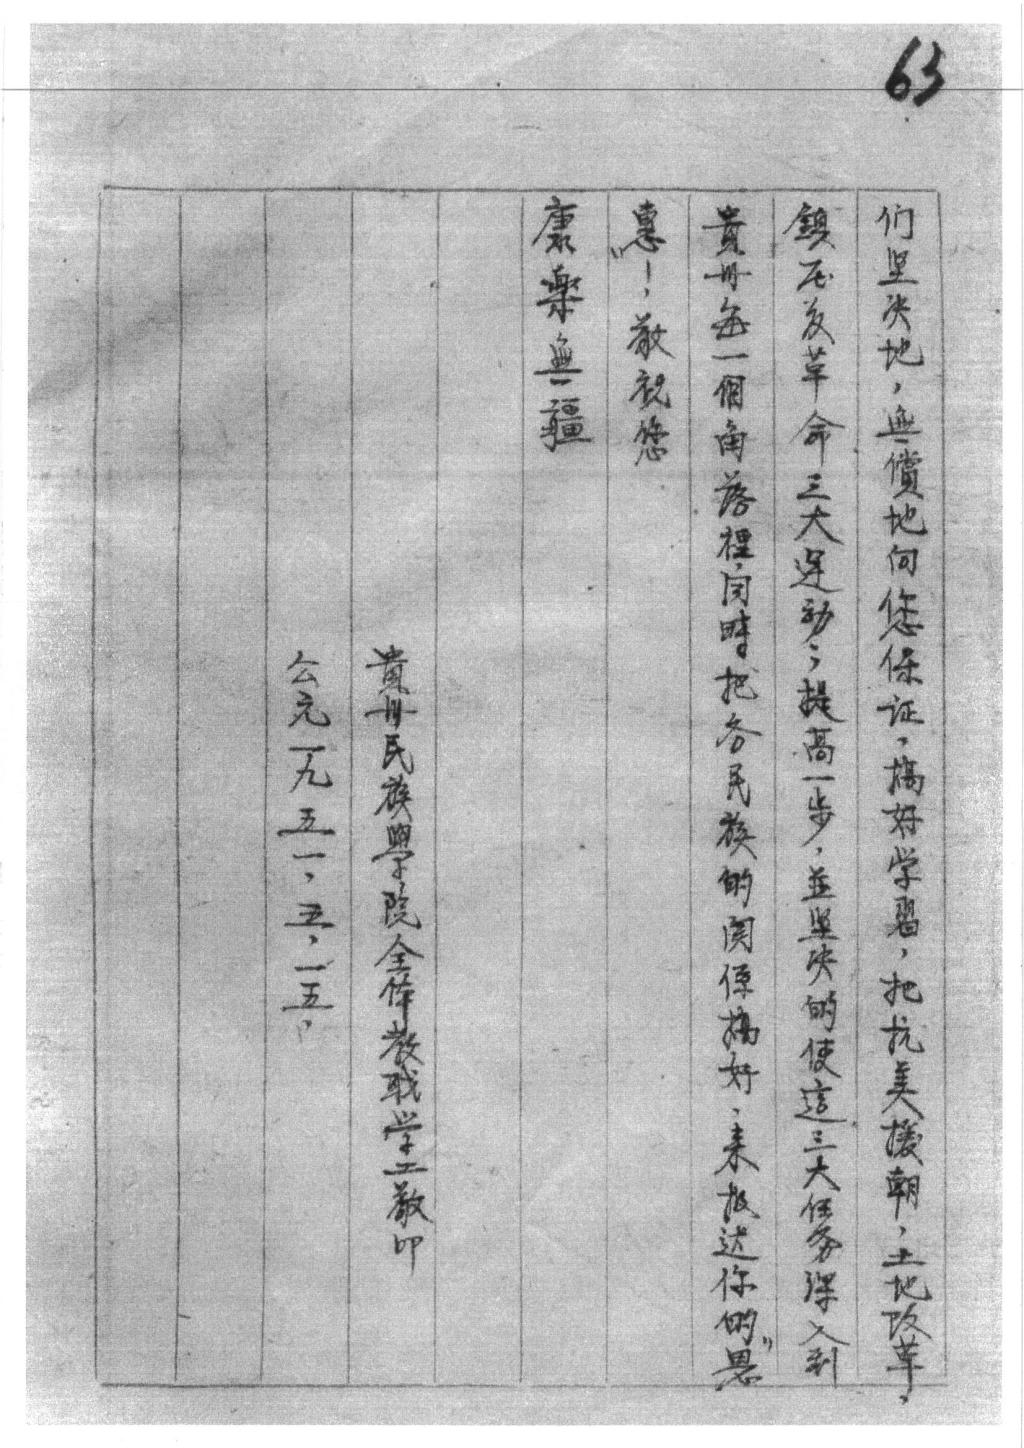 63
们坚决地，無償地向您保证，搞好学習，把抗美援朝，土地改革，
鎮压反革命三大运动，提高一步，並坚决的使這三大任务深入到
貴州每一個角落裡，同時把各民族的関係搞好，来报达你的"恩
惠"！，敬祝您
康樂無疆
貴州民族學院全体教职学工敬印
公元一九五一，五，一五，